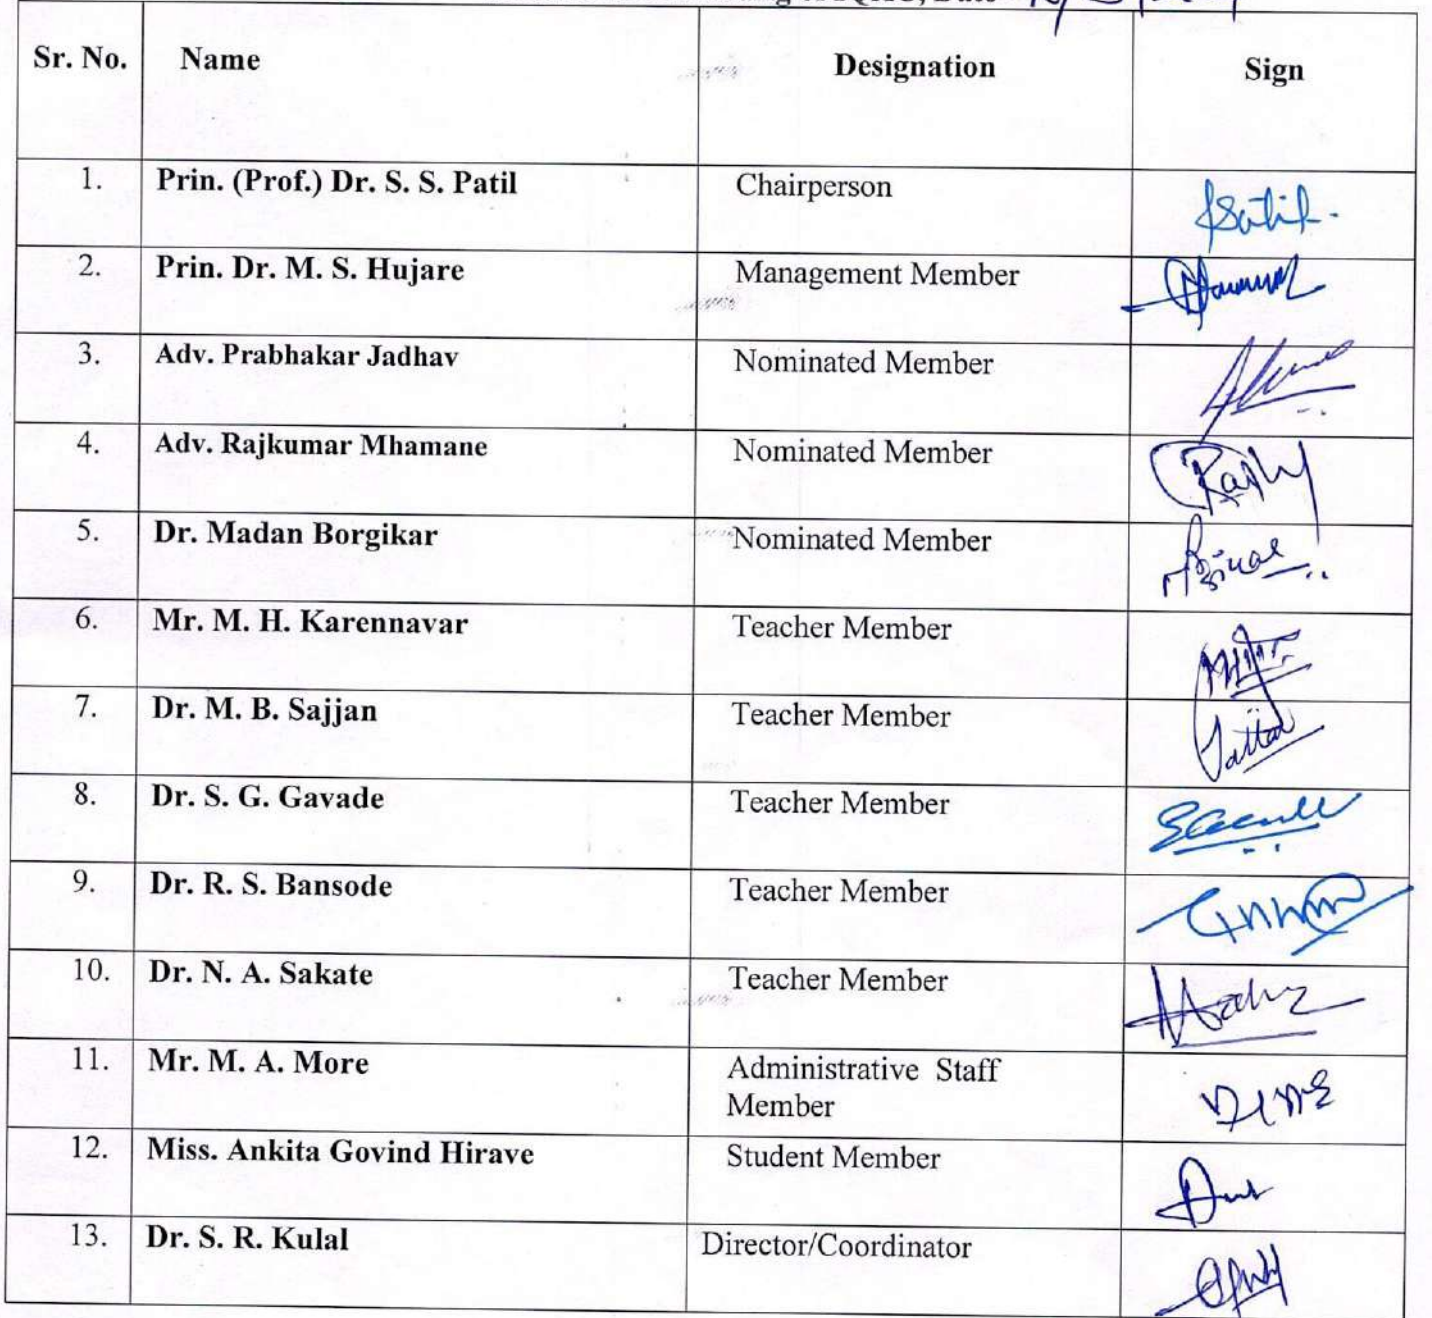 Sr. No. Name Designation Sign
1. Prin. (Prof.) Dr. S. S. Patil Chairperson
2. Prin. Dr. M. S. Hujare Management Member
3. Adv. Prabhakar Jadhav Nominated Member
4. Adv. Rajkumar Mhamane Nominated Member
5. Dr. Madan Borgikar Nominated Member
6. Mr. M. H. Karennavar Teacher Member
7. Dr. M. B. Sajjan Teacher Member
8. Dr. S. G. Gavade Teacher Member
9. Dr. R. S. Bansode Teacher Member
10. Dr. N. A. Sakate Teacher Member
11. Mr. M. A. More Administrative Staff
Member
12. Miss. Ankita Govind Hirave Student Member
13. Dr. S. R. Kulal Director/Coordinator